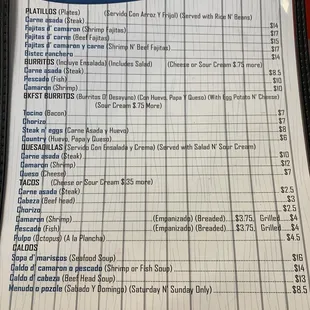 PLATILLOS (Platea) (Servido Con Arroz Y Frijol) (Served with Rice N' Beans)
Carne asada (Steak) $14
Fajitas d' camaron (Shrimp Fajitas) $17
Fajitas d' carne (Beef Fajitas) $15
Fajitas d' camaron y carne (Shrimp N' Beef Fajitas) $17
Bistec ranchero $14
BURRITOS (Incluye Ensalada) (Includes Salad) (Cheese or Sour Cream $.75 more)
Carne asada (Steak) $8.5
Pescado (Fish) $10
Camaron (Shrimp) $10
BKFST BURRITOS (Burritos D' Desayuno) (Con Huevo, Papa Y Queso) (With Egg Potato N' Cheese)
(Sour Cream $.75 More)
Tocino (Bacon) $7
Chorizo $7
Steak n' eggs (Carne Asada y Huevo) $8
Country (Huevo, Papa y Queso) $6
QUESADILLAS (Servido Con Ensalada y Crema) (Served with Salad N' Sour Cream)
Carne asada (Steak) $10
Camaron (Shrimp) $12
Queso (Cheese) $7
TACOS (Cheese or Sour Cream $.35 more)
Carne asada (Steak) $2.5
Cabeza (Beef head) $3
Chorizo $2.5
Camaron (Shrimp) (Empanizado) (Breaded) $3.75, Grilled $4
Pescado (Fish) (Empanizado) (Breaded) $3.75, Grilled $4
Pulpo (Octopus) (A la Plancha) $4.5
CALDOS
Sopa d' mariscos (Seafood Soup) $16
Caldo d' camaron o pescado (Shrimp or Fish Soup) $14
Caldo d' cabeza (Beef Head Soup) $13
Menudo o pozole (Sabado Y Domingo) (Saturday N' Sunday Only) $8.5